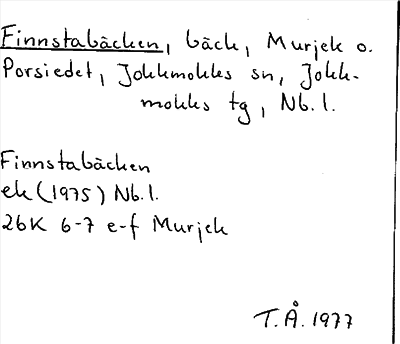 Finnstabäcken, bäck, Murjek o.
Porsiedet, Jokkmokks sn, Jokk-
mokks tg, Nb.l.
Finnstabäcken
ek (1975) Nb.l.
26K 6-7 e-f Murjek
T.Å. 1977